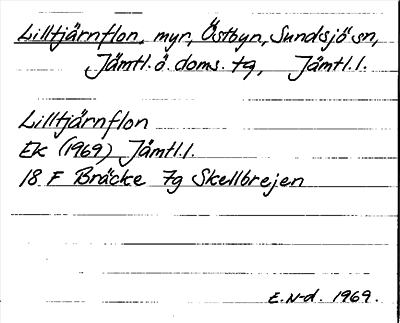 Lilltjärnflon, myr, Östbyn, Sundsjö sn,
Jämtl. ö. doms. tg, Jämtl. l.
Lilltjärnflon
Ek (1969) Jämtl. l.
18 F Bräcke 7g Skellbrejen
E. N-d. 1969.